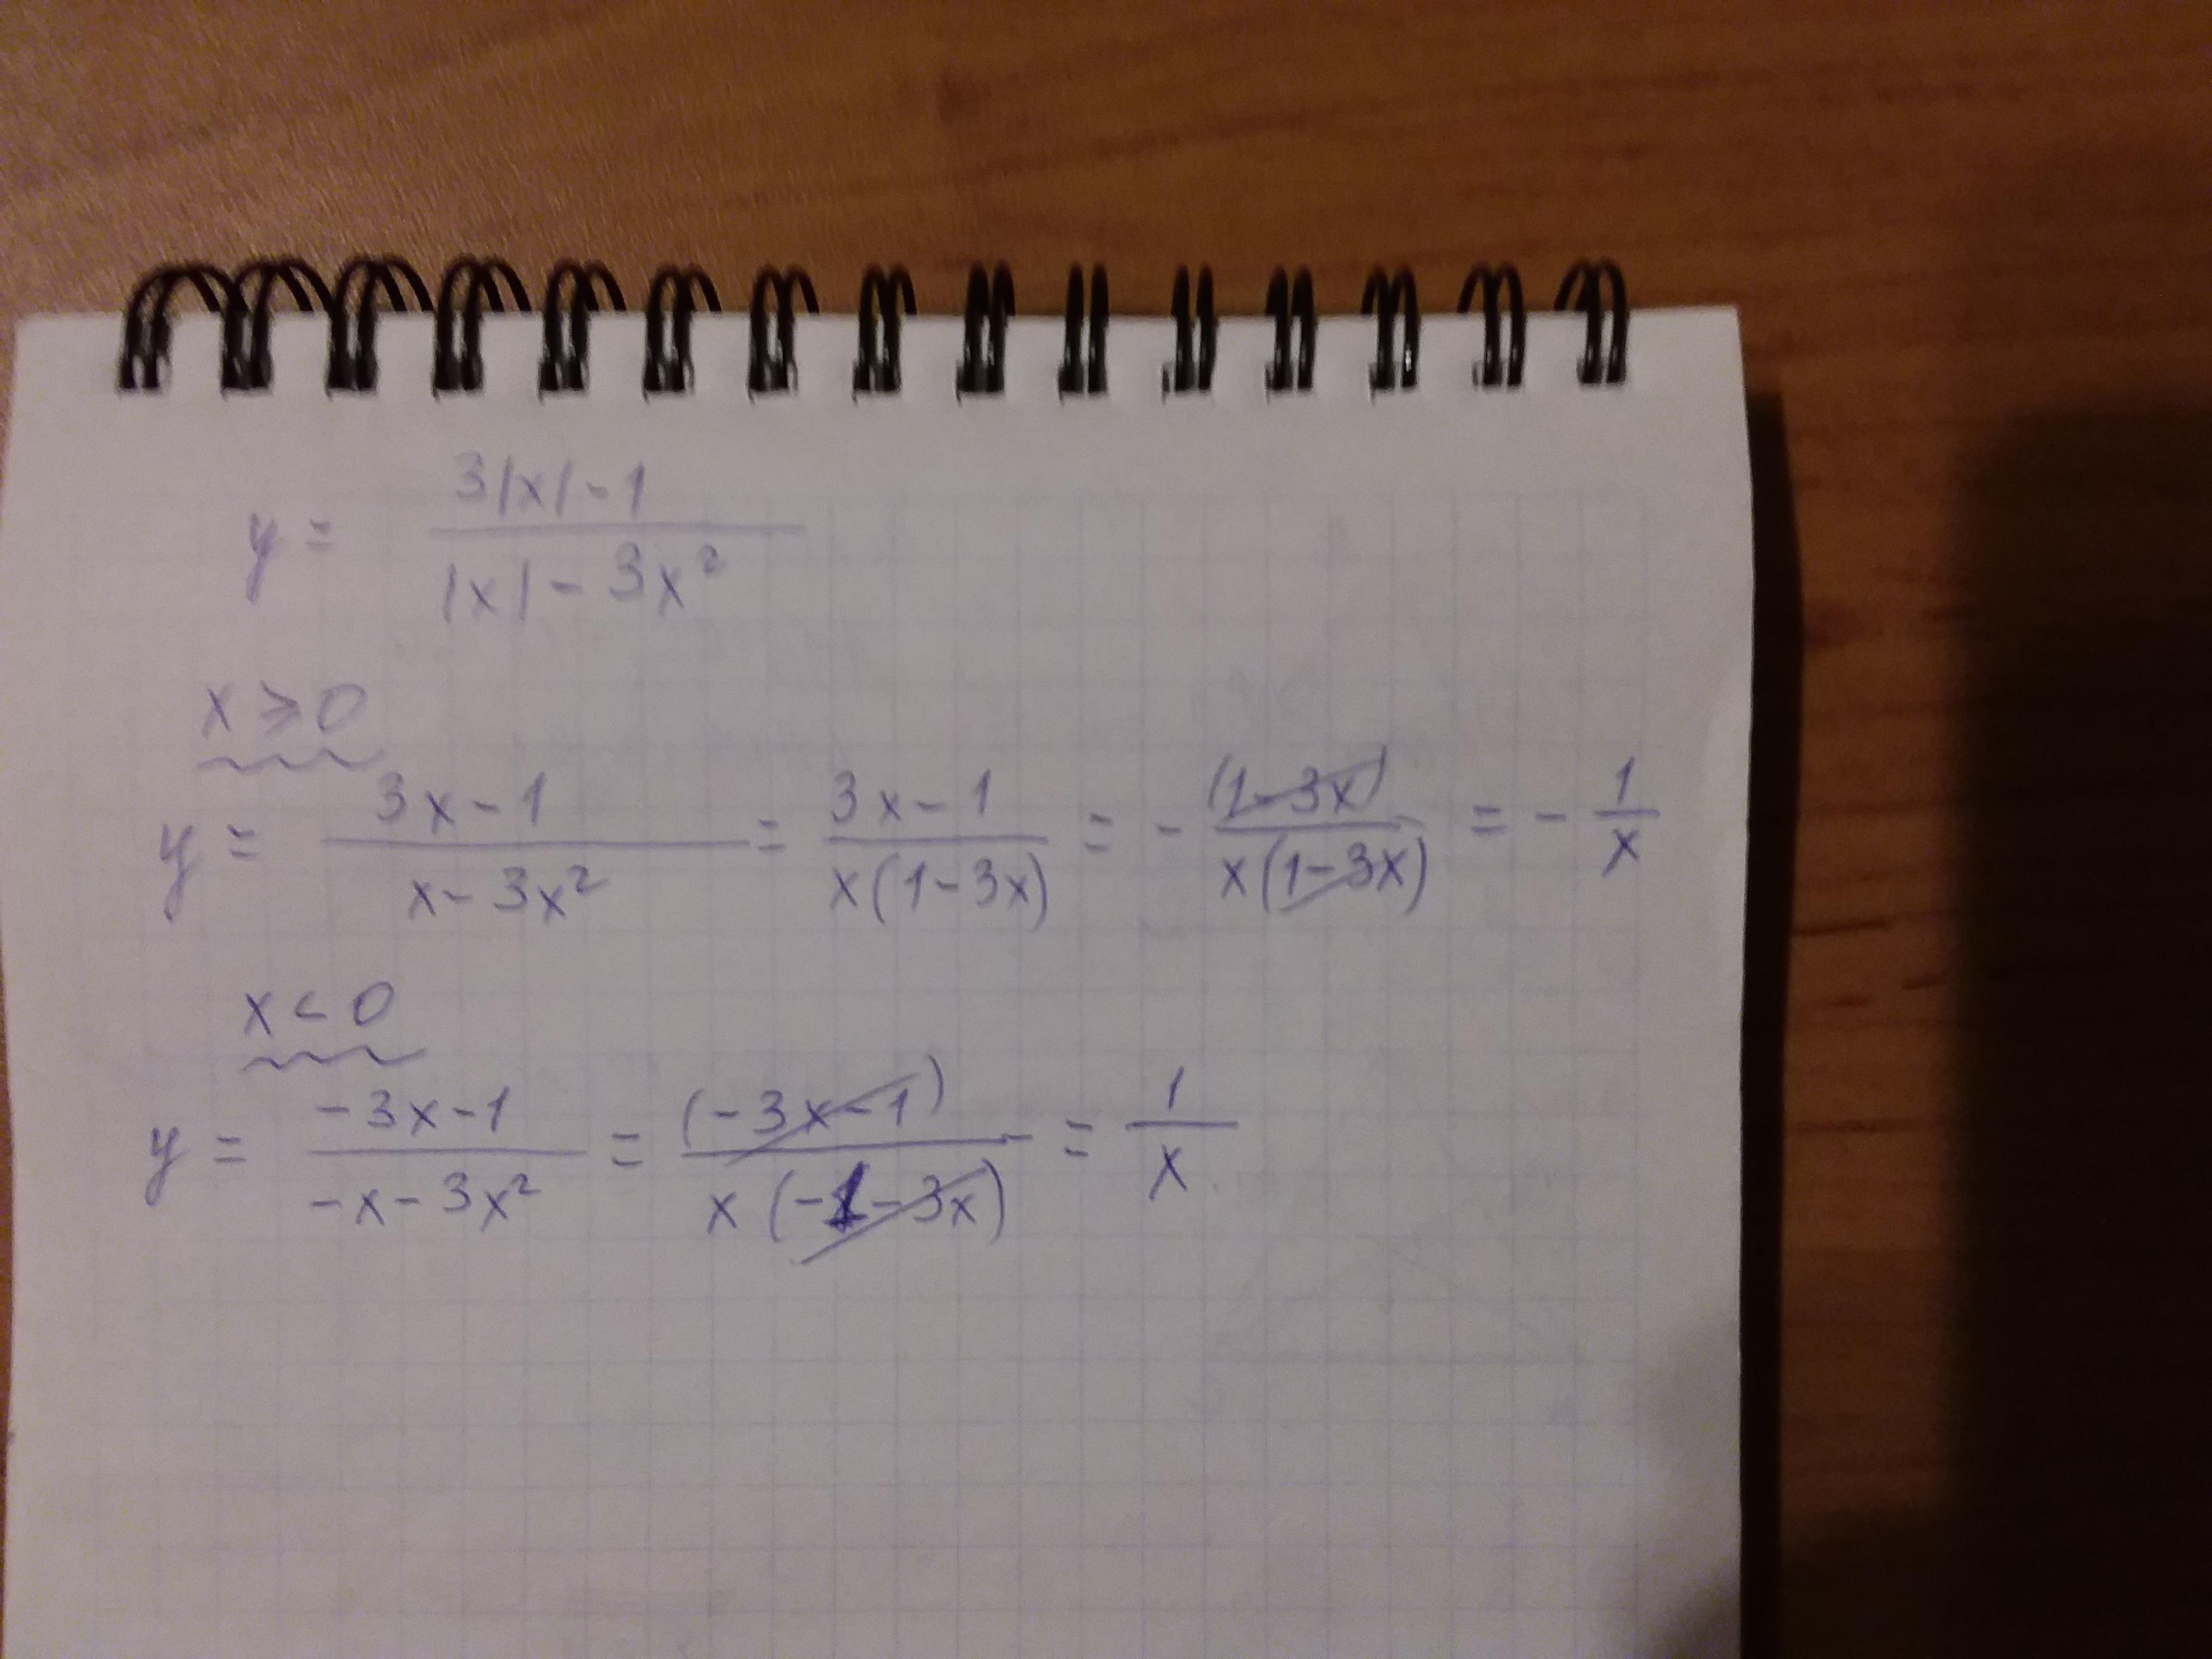 y = (3|x| - 1) / (|x| - 3x²)
x ⩾ 0
y = (3x - 1) / (x - 3x²) = (3x - 1) / (x(1 - 3x)) = - (1 - 3x) / (x(1 - 3x)) = - 1/x
x < 0
y = (-3x - 1) / (-x - 3x²) = (-3x - 1) / (x(-1 - 3x)) = 1/x